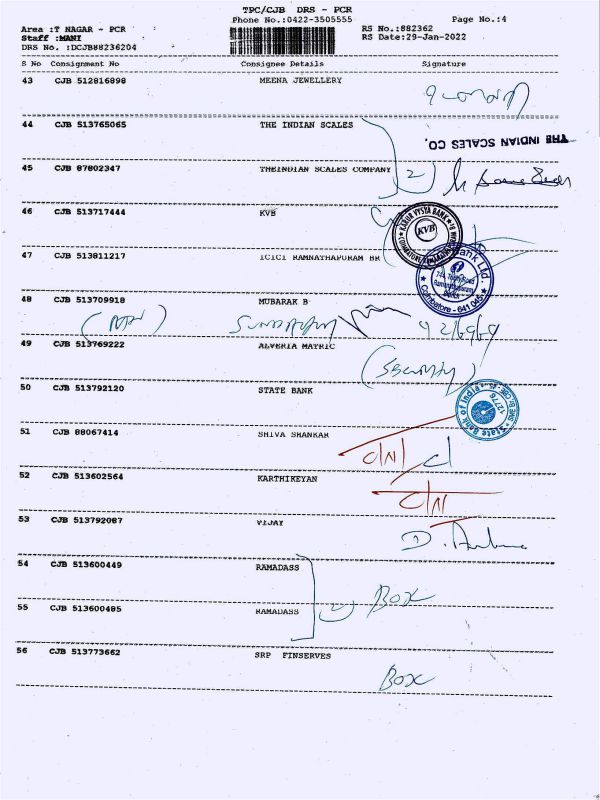 TPC/CJB DRS - PCR
Phone No.:0422-3505555 Page No.:4
Area :T NAGAR - PCR RS No.:882362
Staff :MANI RS Date:29-Jan-2022
DRS No. :DCJB88236204
S No Consignment No Consignee Details Signature
43 CJB 512816898 MEENA JEWELLERY
44 CJB 513765065 THE INDIAN SCALES
THE INDIAN SCALES CO.
45 CJB 87802347 THEINDIAN SCALES COMPANY 2
46 CJB 513717444 KVB
KARUR VYSYA BANK
KVB
47 CJB 513811217 ICICI RAMNATHAPURAM BR
Bank Ltd.
Coimbatore - 641 045
48 CJB 513709918 MUBARAK B
49 CJB 513769222 ALVERIA MATRIC
(Security)
50 CJB 513792120 STATE BANK
State Bank of India
12776
51 CJB 88067414 SHIVA SHANKAR
C/N
52 CJB 513602564 KARTHIKEYAN
C/N
53 CJB 513792087 VIJAY
54 CJB 513600449 RAMADASS
2 BOX
55 CJB 513600485 RAMADASS
56 CJB 513773662 SRP FINSERVES
BOX